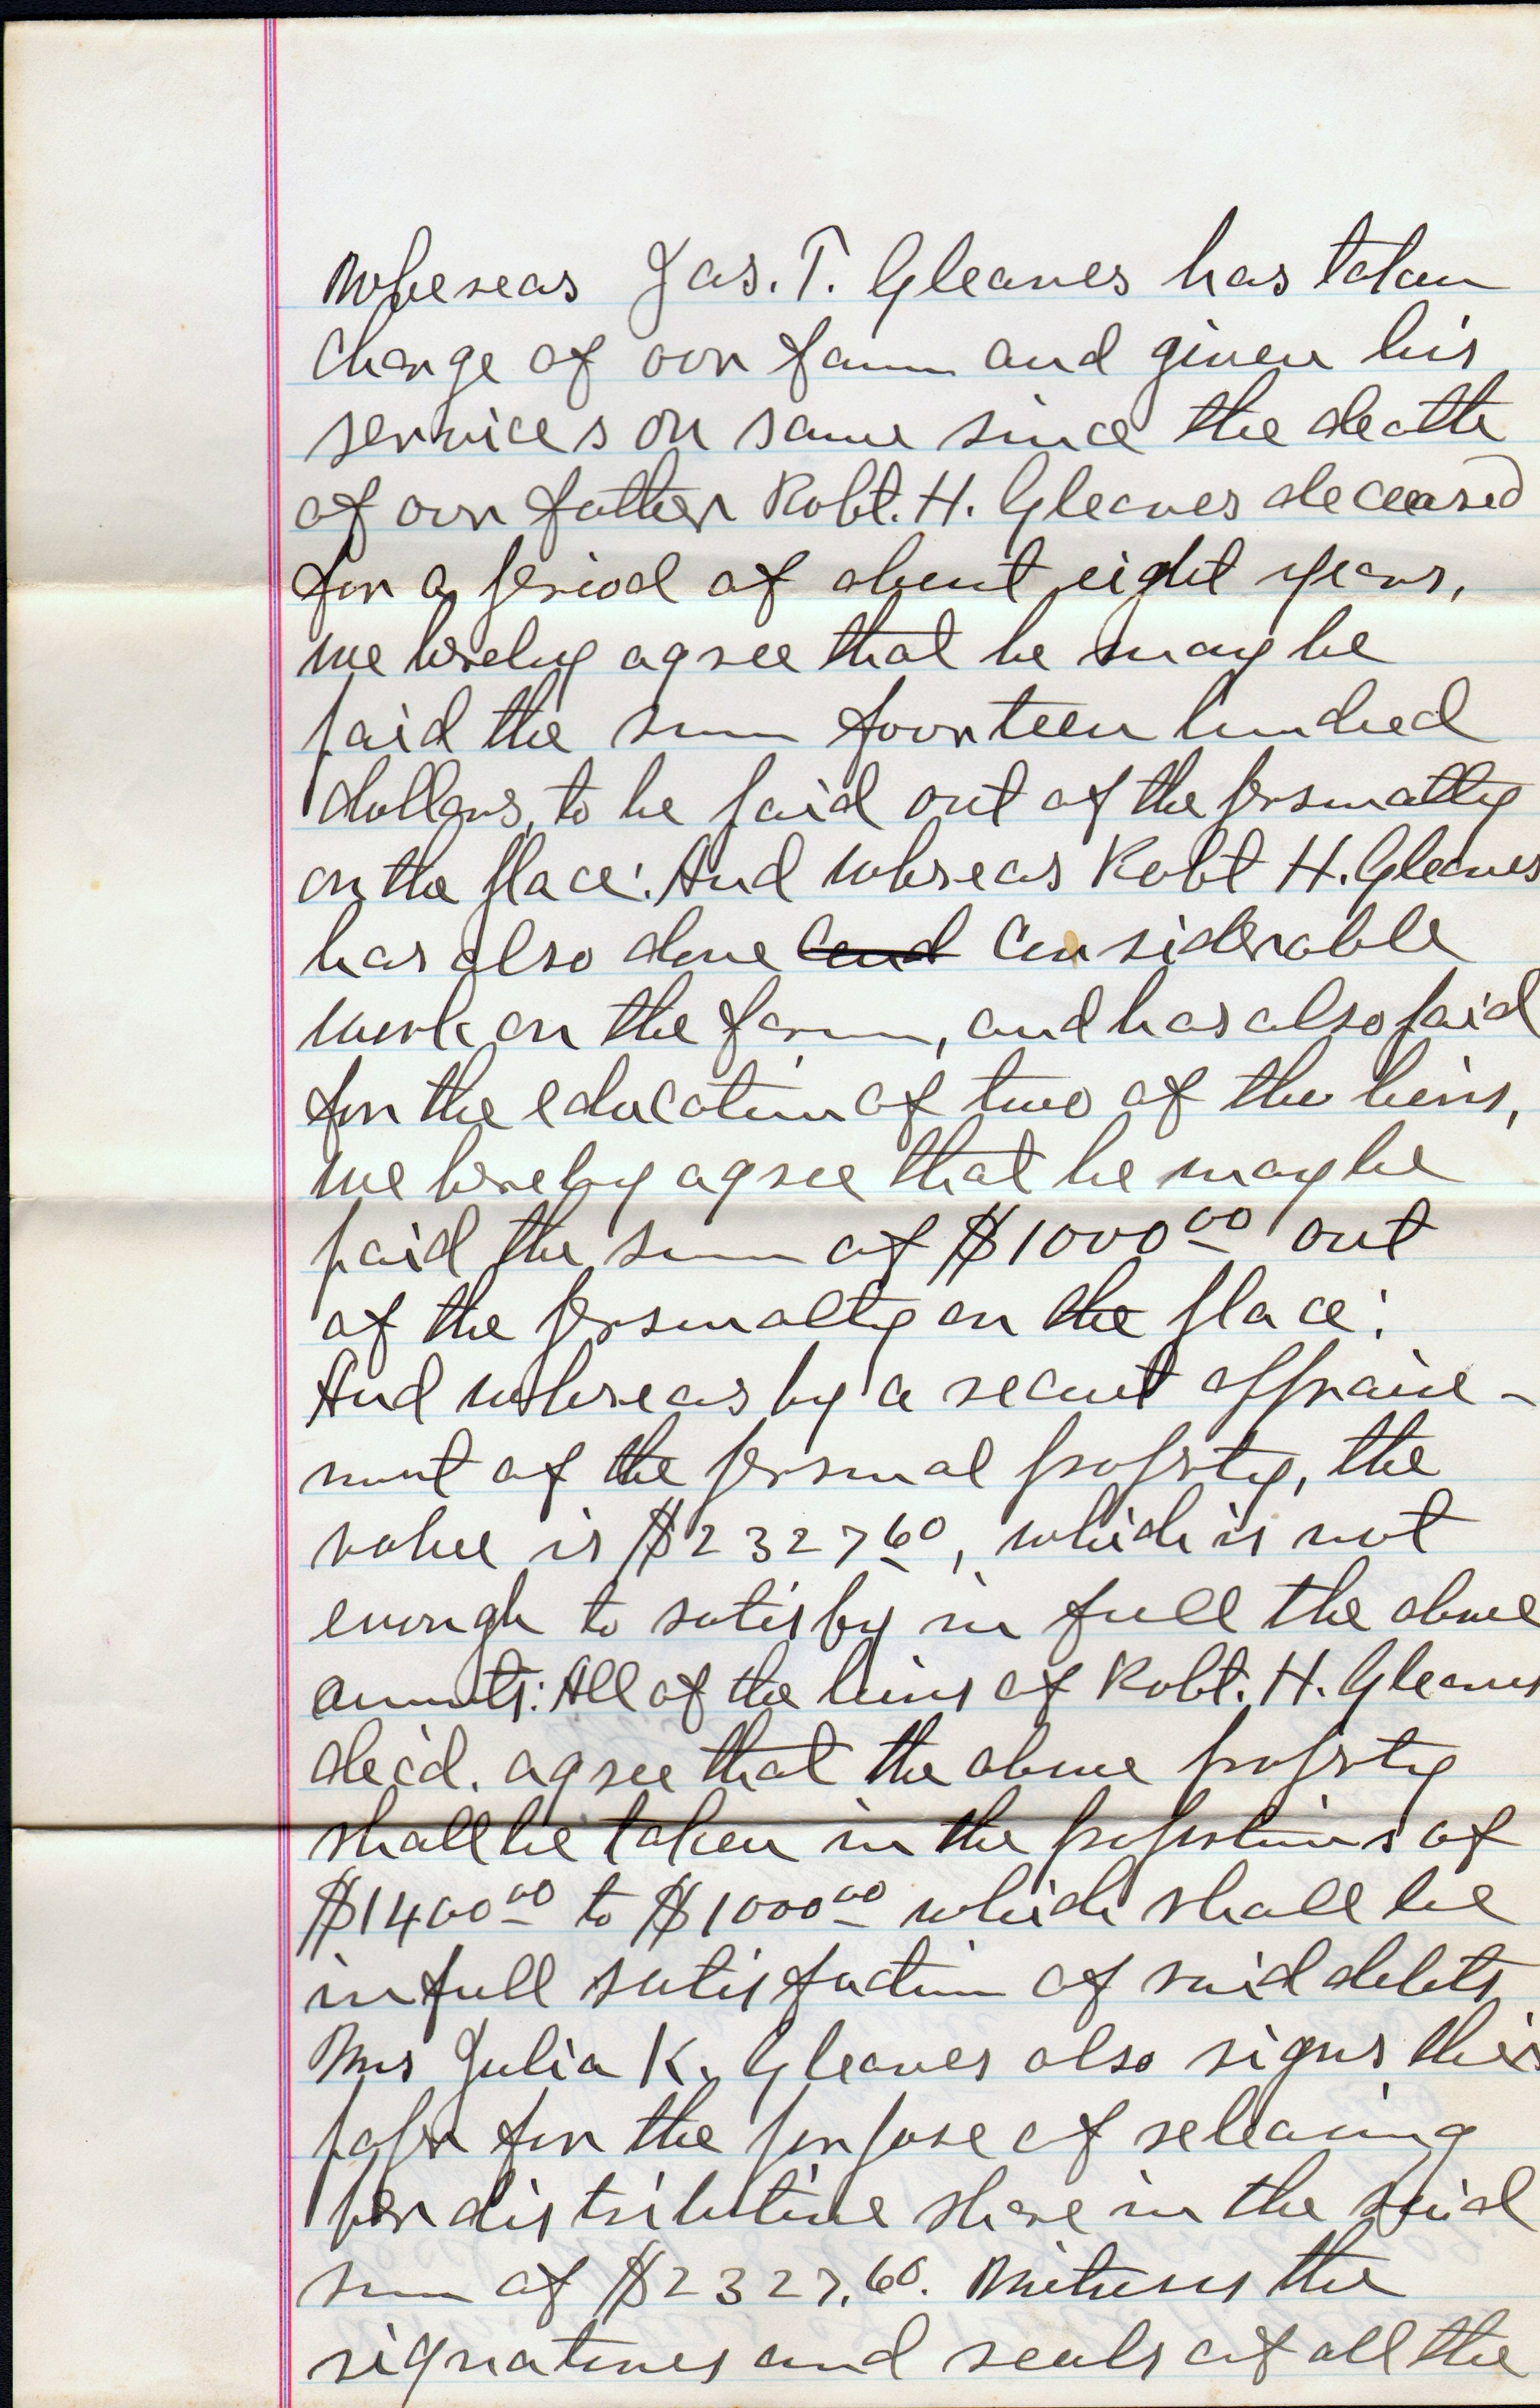 Whereas Jas. T. Gleaves has taken
charge of our farm and given his
services on same since the death
of our father Robt. H. Gleaves deceased
for a period of about eight years,
we hereby agree that he may be
paid the sum fourteen hundred
dollars, to be paid out of the personalty
on the place: And whereas Robt H. Gleaves
has also done cond considerable
work on the farm, and has also paid
for the education of two of the heirs,
we hereby agree that he may be
paid the sum of $1000.00 out
of the personalty on the place:
And whereas by a recent appraise-
ment of the personal property, the
value is $2327 60, which is not
enough to satisfy in full the above
amounts: All of the heirs of Robt. H. Gleaves
dec'd. agree that the above property
shall be taken in the proportions of
$1400 00 to $1000 00 which shall be
in full satisfaction of said debts
Mrs Julia K. Gleaves also signs this
paper for the purpose of releasing
her distributive share in the said
sum of $2327.60. Witness the
signatures and seals of all the